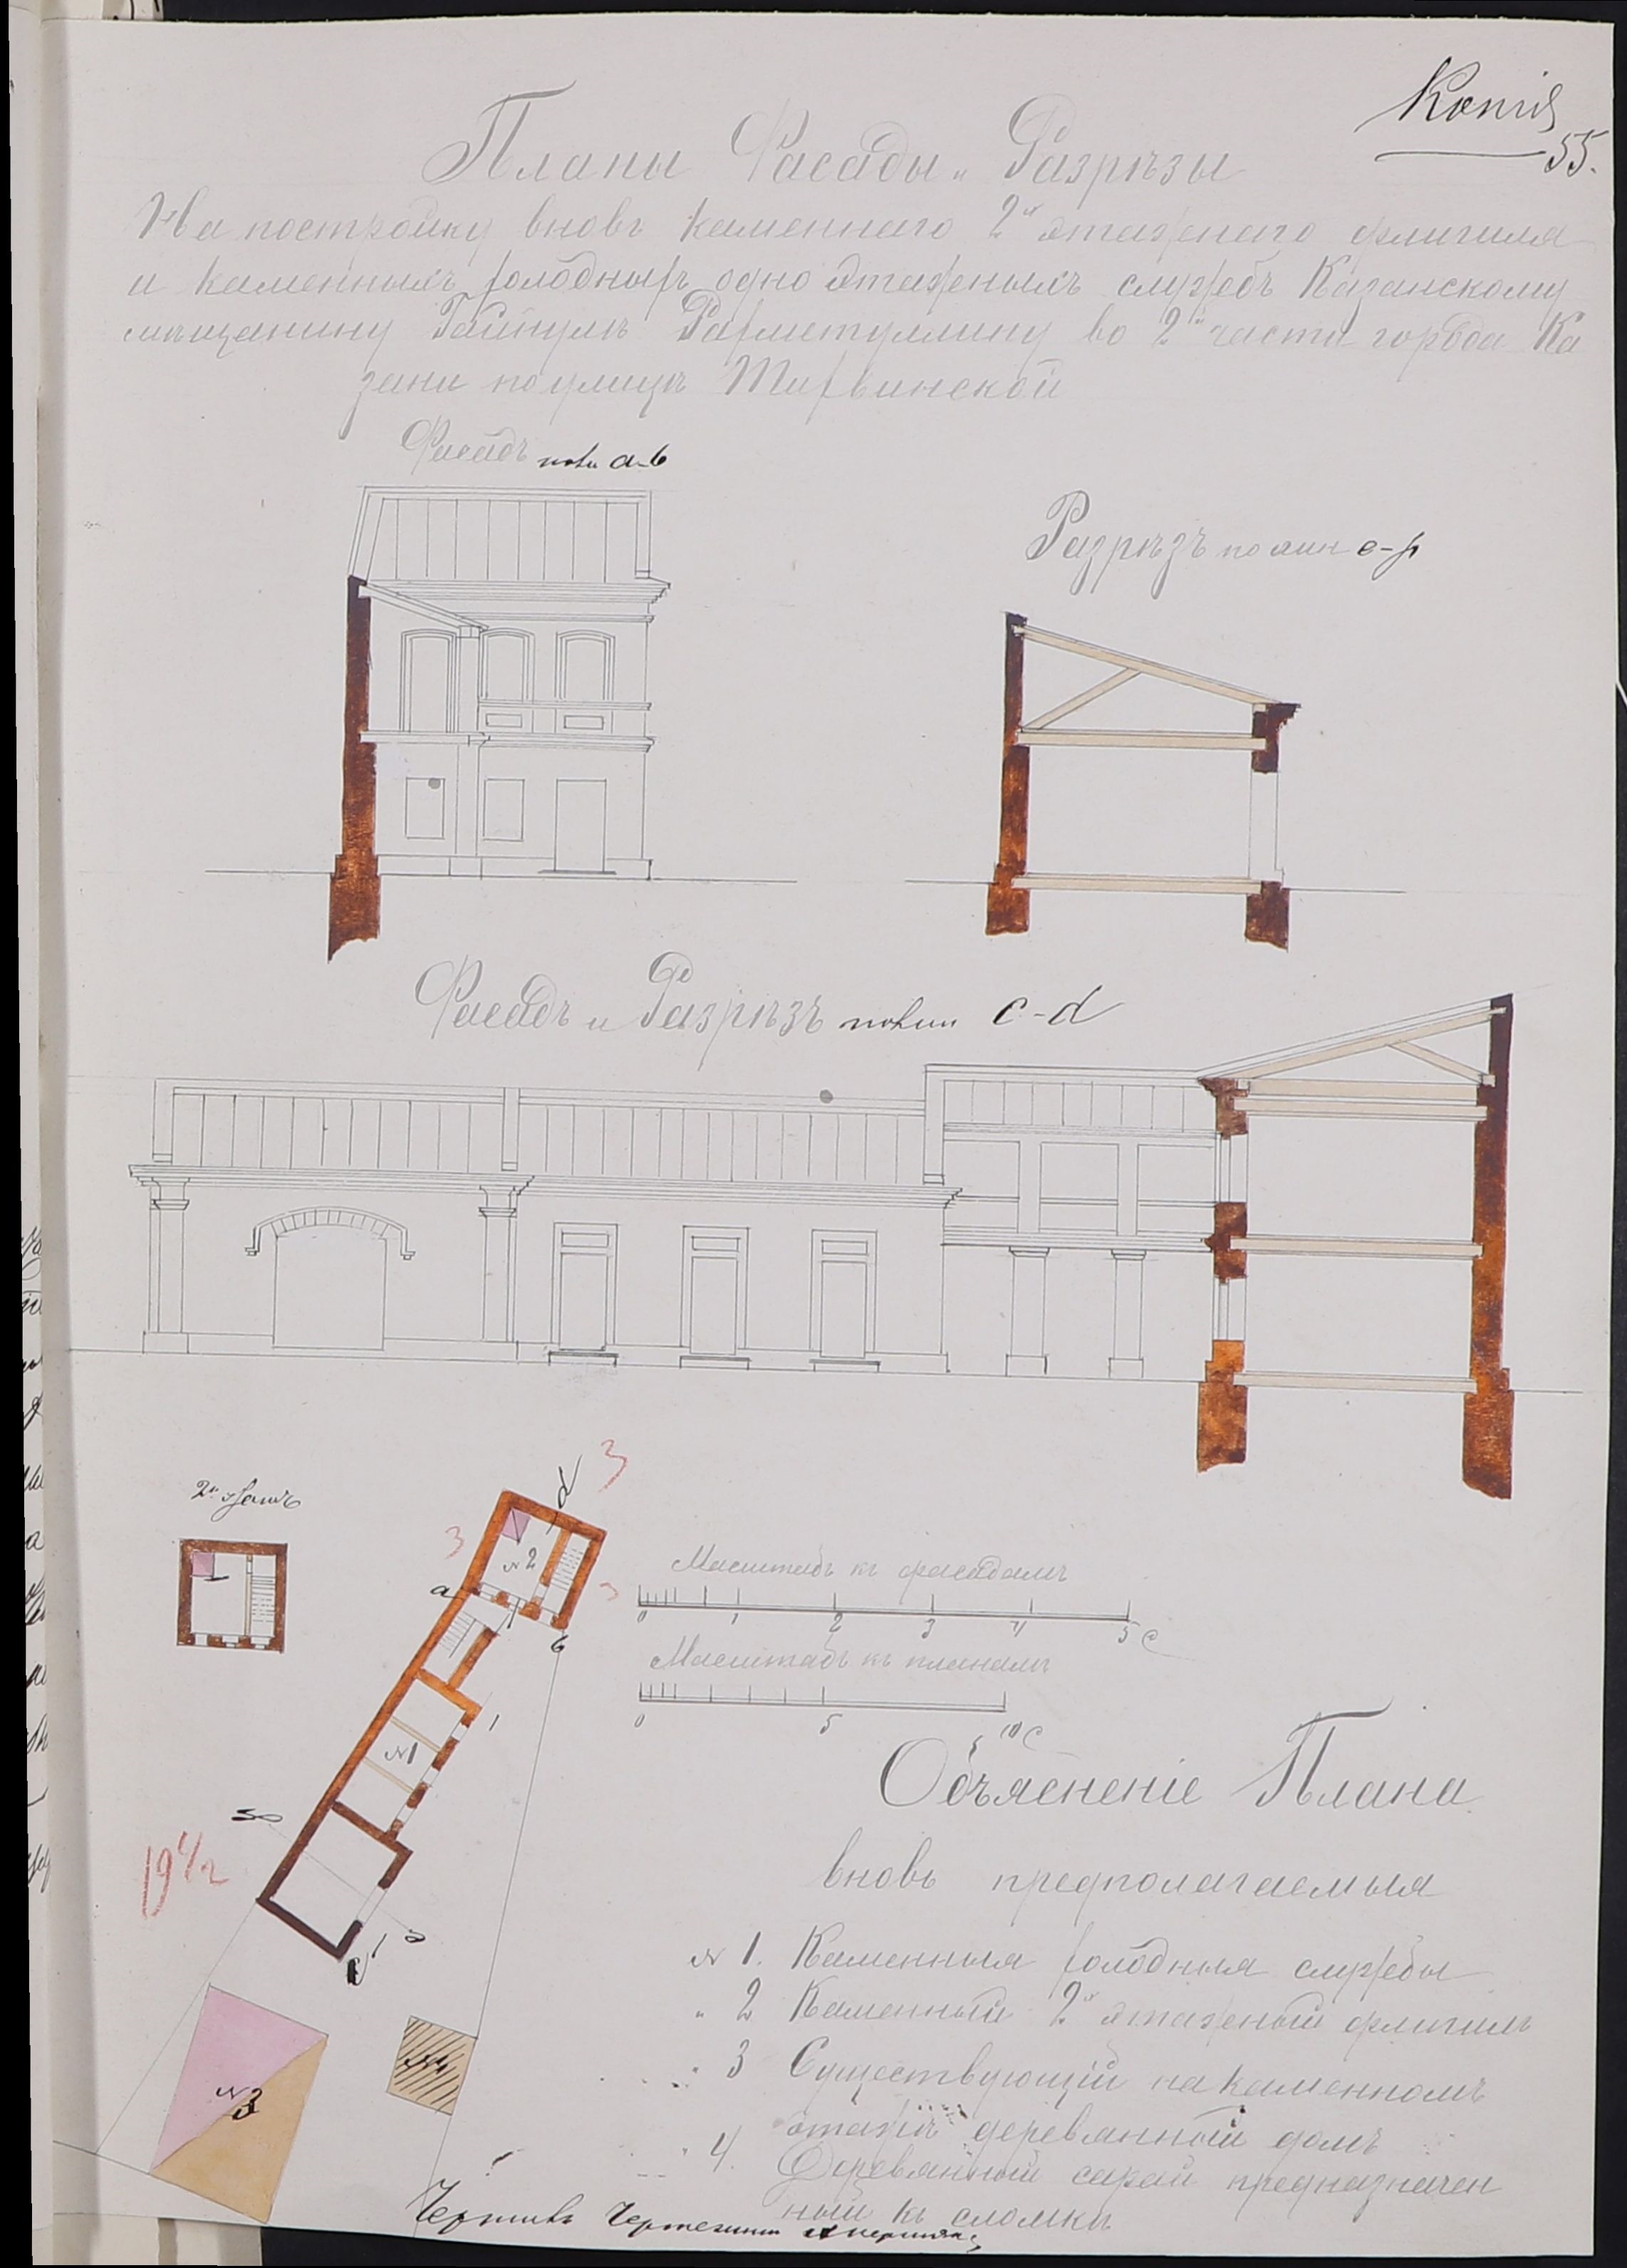 Копия
55.
Планы Фасады и Разрѣзы
На постройку вновь каменнаго 2х этажнаго флигиля
и каменныхъ холодныхъ одно этажныхъ службъ Казанскому
мѣщанину Рахметуллину во 2й части города Ка
зани по улицѣ Тихвинской
Фасадъ по ли a-b
Разрѣзъ по лин e-f
Фасадъ и Разрѣзъ по лин c-d
2й этажъ
d
3
3
№2
3
a
b
№1
19 1/2
c
№3
Масштабъ къ фасадамъ
0 1 2 3 4 5 С
Масштабъ къ планамъ
0 5 10 С
Объясненіе Плана
вновь предполагаемыя
№ 1. Каменныя холодныя службы
" 2 Каменный 2х этажный флигиль
" 3 Существующій на каменномъ
этажѣ деревянный домъ
" 4. Деревянный сарай предназначен
ный къ сломкѣ
Чертилъ